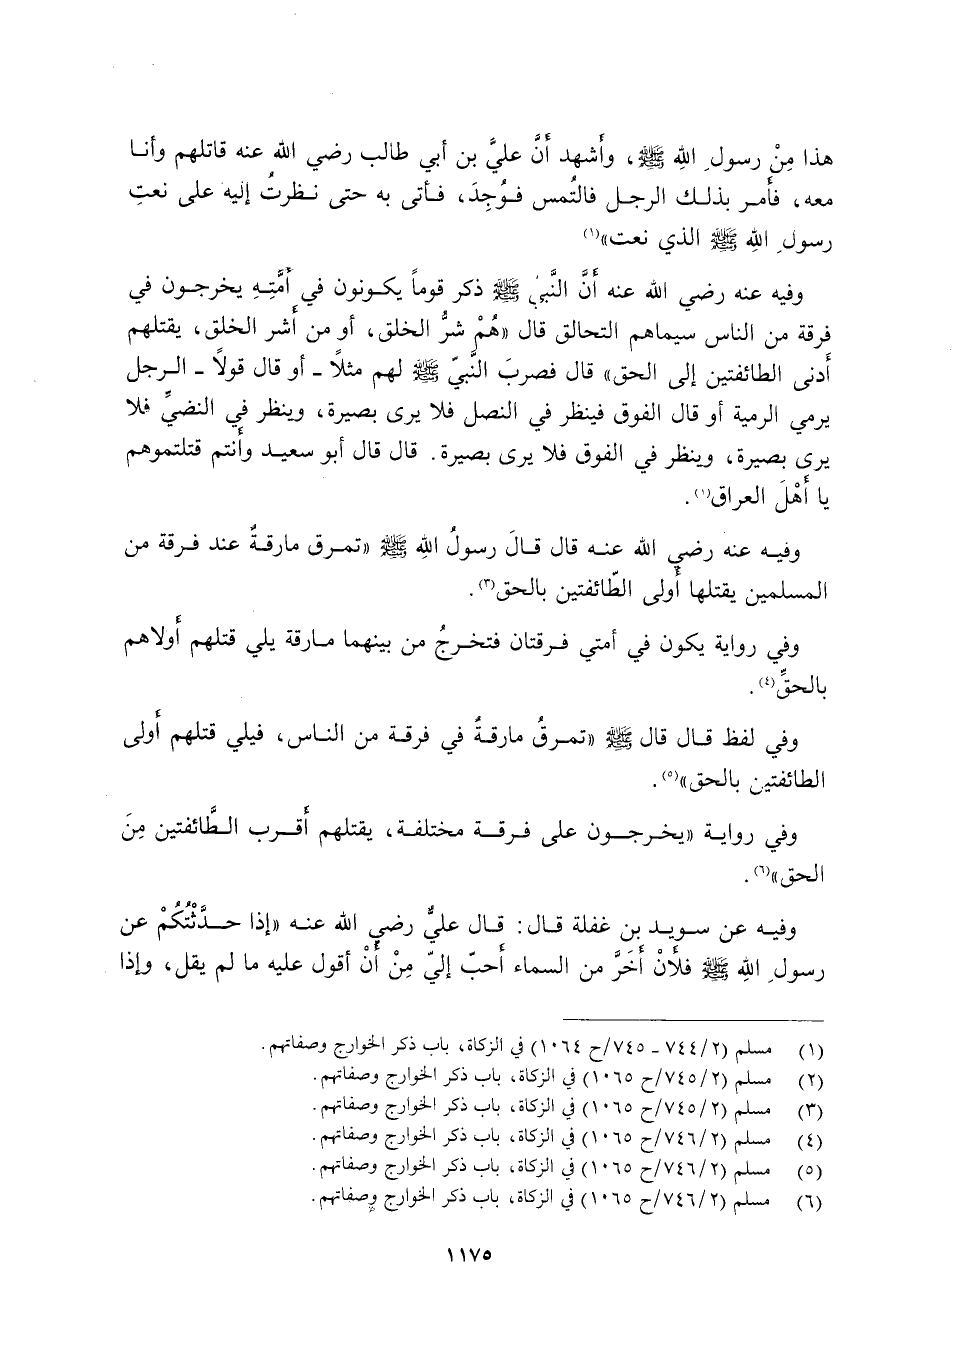 هذا مِنْ رسولِ الله ﷺ، وأَشهد أَنَّ عليَّ بن أبي طالب رضي الله عنه قاتلهم وأنا
معه، فأَمر بذلك الرجل فالتُمس فوُجِدَ، فأتى به حتى نظرتُ إليه على نعتِ
رسولِ اللهِ ﷺ الذي نعت»(١)
وفيه عنه رضي الله عنه أَنَّ النَّبيَّ ﷺ ذكر قوماً يكونون في أُمَّتِهِ يخرجون في
فرقة من الناس سيماهم التحالق قال «هُمْ شرُّ الخلق، أو من أَشر الخلق، يقتلهم
أَدنى الطائفتين إلى الحق» قال فصربَ النَّبيّ ﷺ لهم مثلاً ـ أو قال قولاً ـ الرجل
يرمي الرمية أو قال الفوق فينظر في النصل فلا يرى بصيرة، وينظر في النضيِّ فلا
يرى بصيرة، وينظر في الفوق فلا يرى بصيرة. قال قال أبو سعيد وأَنتم قتلتموهم
يا أَهْلَ العراق(١).
وفيه عنه رضي الله عنه قال قالَ رسولُ الله ﷺ «تمرق مارقةٌ عند فرقة من
المسلمين يقتلها أَولى الطّائفتين بالحق(٣).
وفي رواية يكون في أمتي فرقتان فتخرجُ من بينهما مارقة يلي قتلهم أَولاهم
بالحقِّ(٤).
وفي لفظ قال قال ﷺ «تمرقُ مارقةٌ في فرقة من الناس، فيلي قتلهم أَولى
الطائفتين بالحق»(٥).
وفي رواية «يخرجون على فرقة مختلفة، يقتلهم أَقرب الطَّائفتين مِنَ
الحق»(٦).
وفيه عن سويد بن غفلة قال: قال عليٌّ رضي الله عنه «إذا حدَّثْتُكُمْ عن
رسولِ اللهِ ﷺ فلأَنْ أَخَرَّ من السماء أَحبّ إليّ مِنْ أَنْ أقول عليه ما لم يقل، وإذا
(١) مسلم (٢/ ٧٤٤ ـ ٧٤٥/ح ١٠٦٤) في الزكاة، باب ذكر الخوارج وصفاتهم.
(٢) مسلم (٢/ ٧٤٥/ح ١٠٦٥) في الزكاة، باب ذكر الخوارج وصفاتهم.
(٣) مسلم (٢/ ٧٤٥/ح ١٠٦٥) في الزكاة، باب ذكر الخوارج وصفاتهم.
(٤) مسلم (٢/ ٧٤٦/ح ١٠٦٥) في الزكاة، باب ذكر الخوارج وصفاتهم.
(٥) مسلم (٢/ ٧٤٦/ح ١٠٦٥) في الزكاة، باب ذكر الخوارج وصفاتهم.
(٦) مسلم (٢/ ٧٤٦/ح ١٠٦٥) في الزكاة، باب ذكر الخوارج وصفاتهم.
١١٧٥